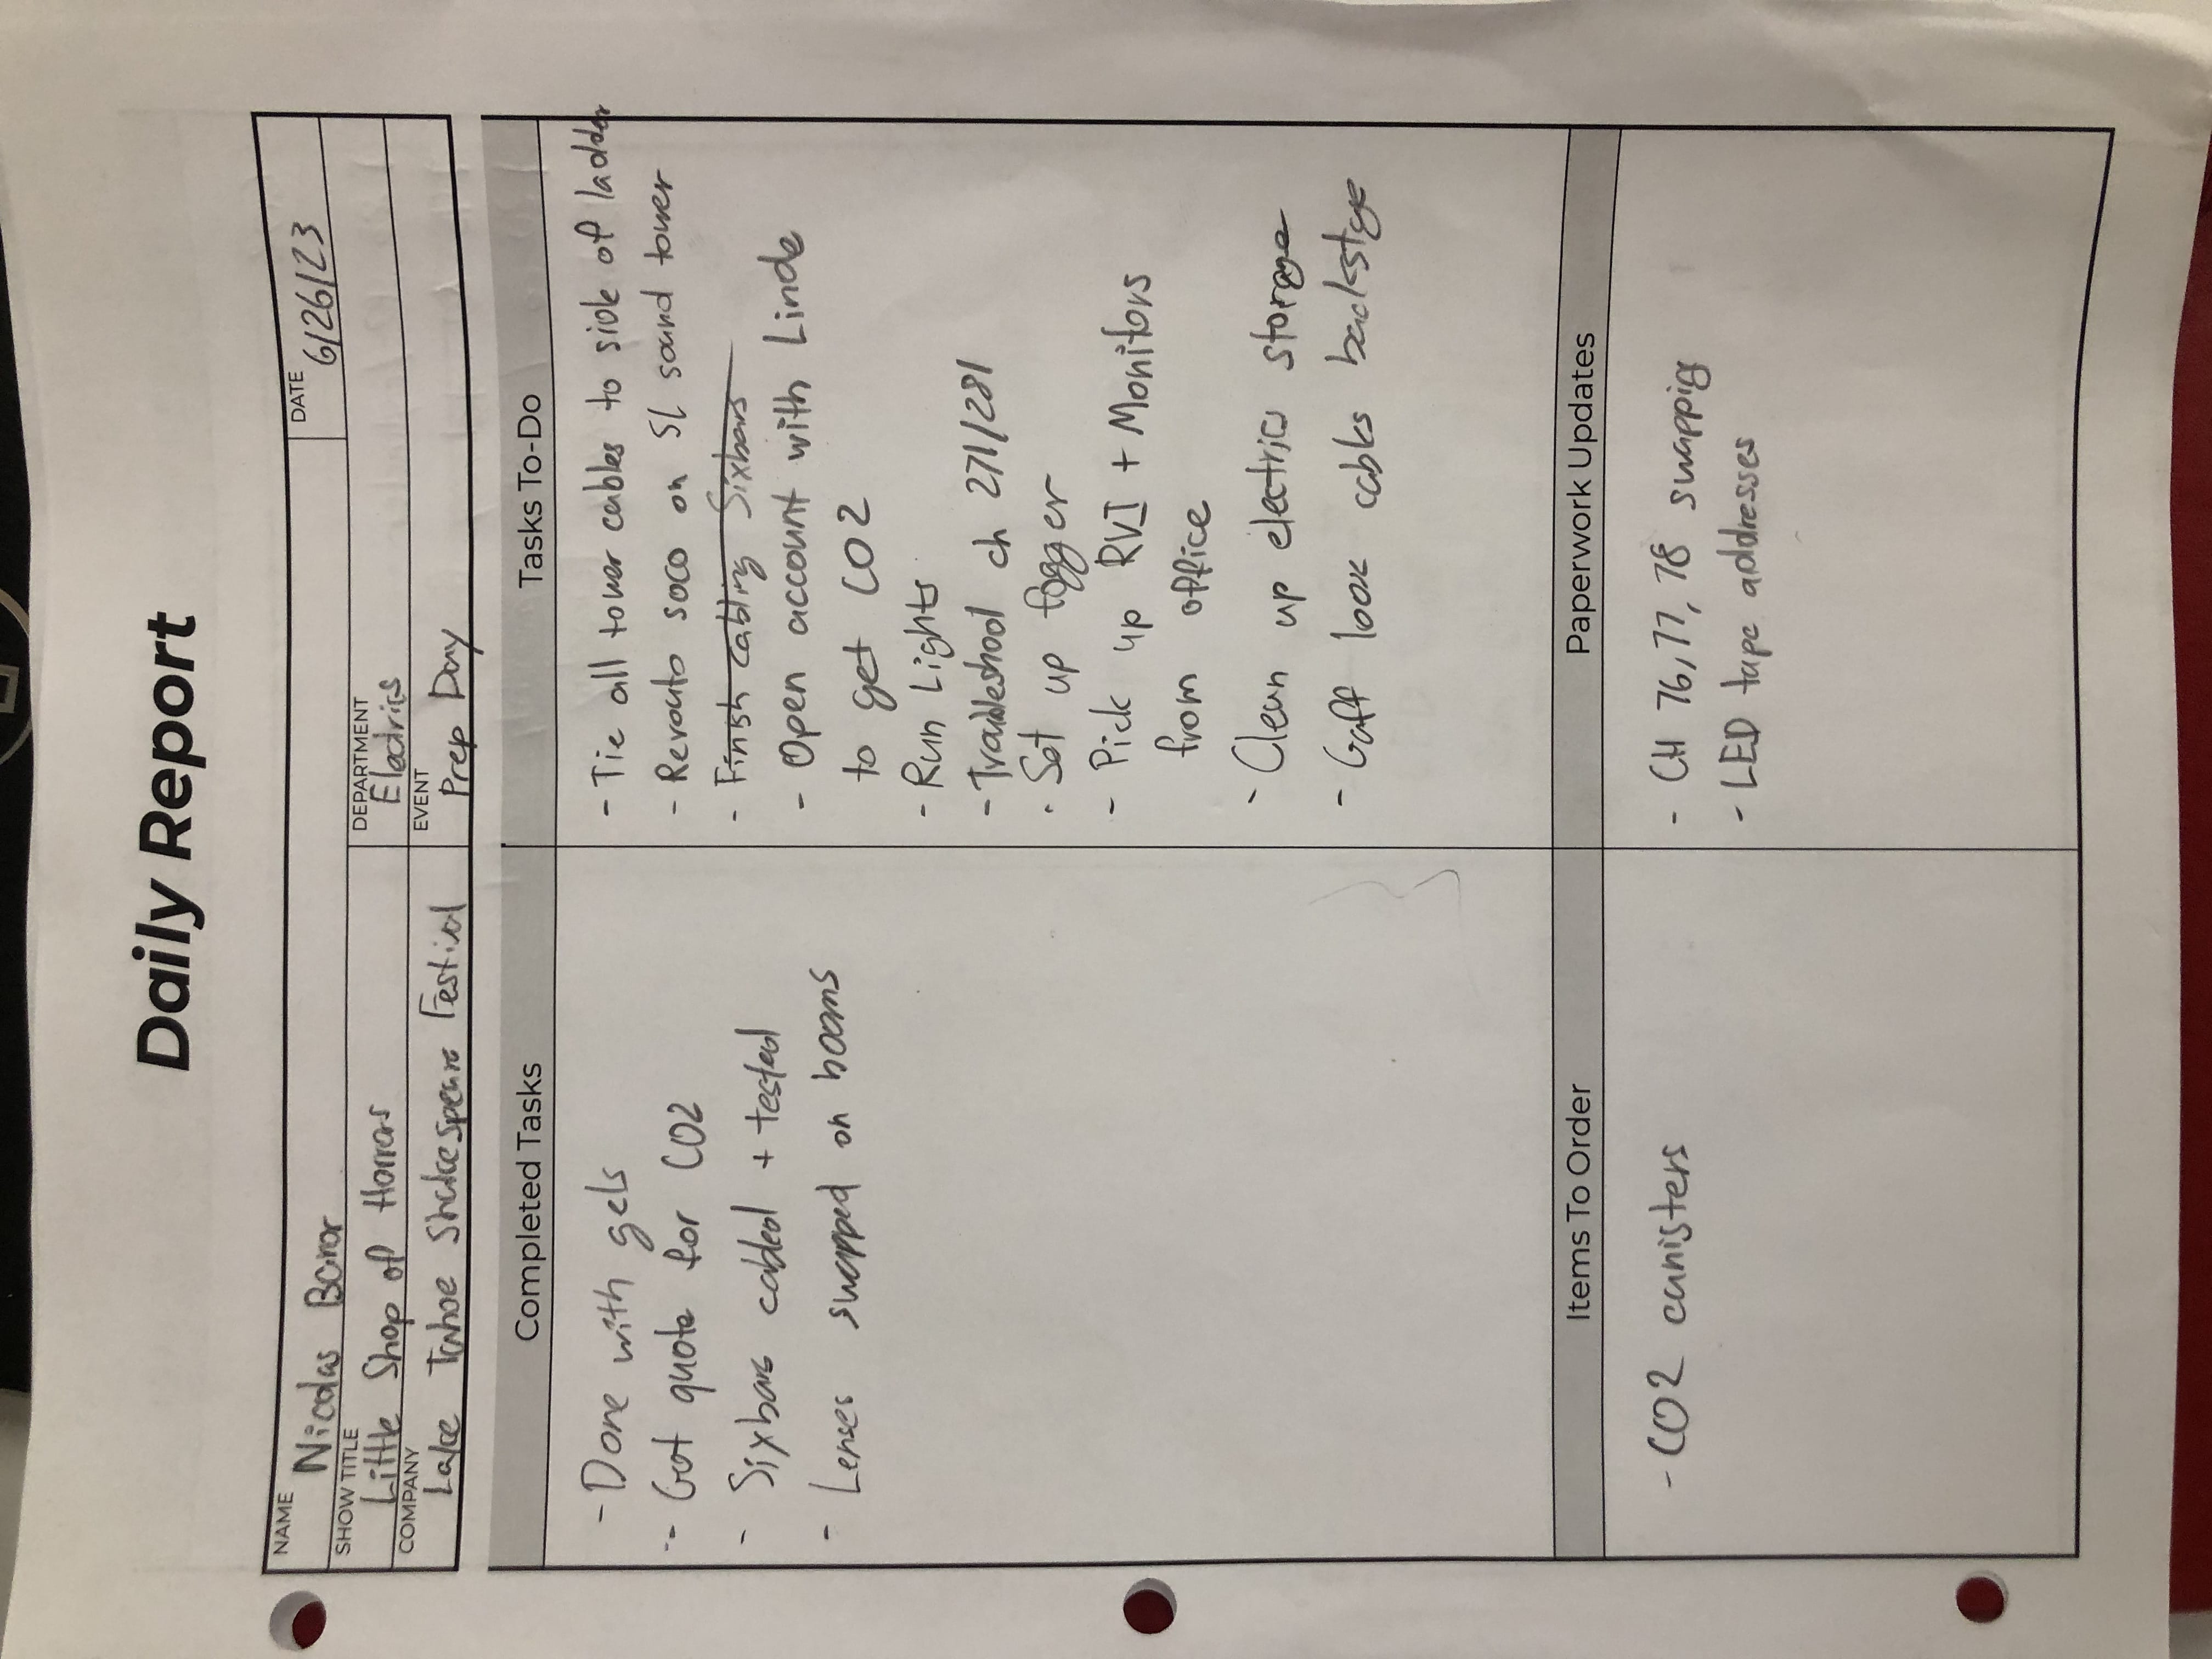 Daily Report
NAME
Nicolas Baror
DATE
6/26/23
SHOW TITLE
Little Shop of Horrors
DEPARTMENT
Electrics
COMPANY
Lake Tahoe Shakespeare Festival
EVENT
Prep Day
Completed Tasks
- Done with gels
- Got quote for CO2
- Sixbars cabled + tested
- Lenses swapped on booms
Tasks To-Do
- Tie all tower cables to side of ladder
- Reroute soco on SL sound tower
- Finish cabling Sixbars
- Open account with Linde
to get CO2
- Run Lights
- Troubleshoot ch 271/281
- Set up fogger
- Pick up RVI + Monitors
from office
- Clean up electrics storage
- Gaff loose cables backstage
Items To Order
- CO2 canisters
Paperwork Updates
- CH 76, 77, 78 swapping
- LED tape addresses